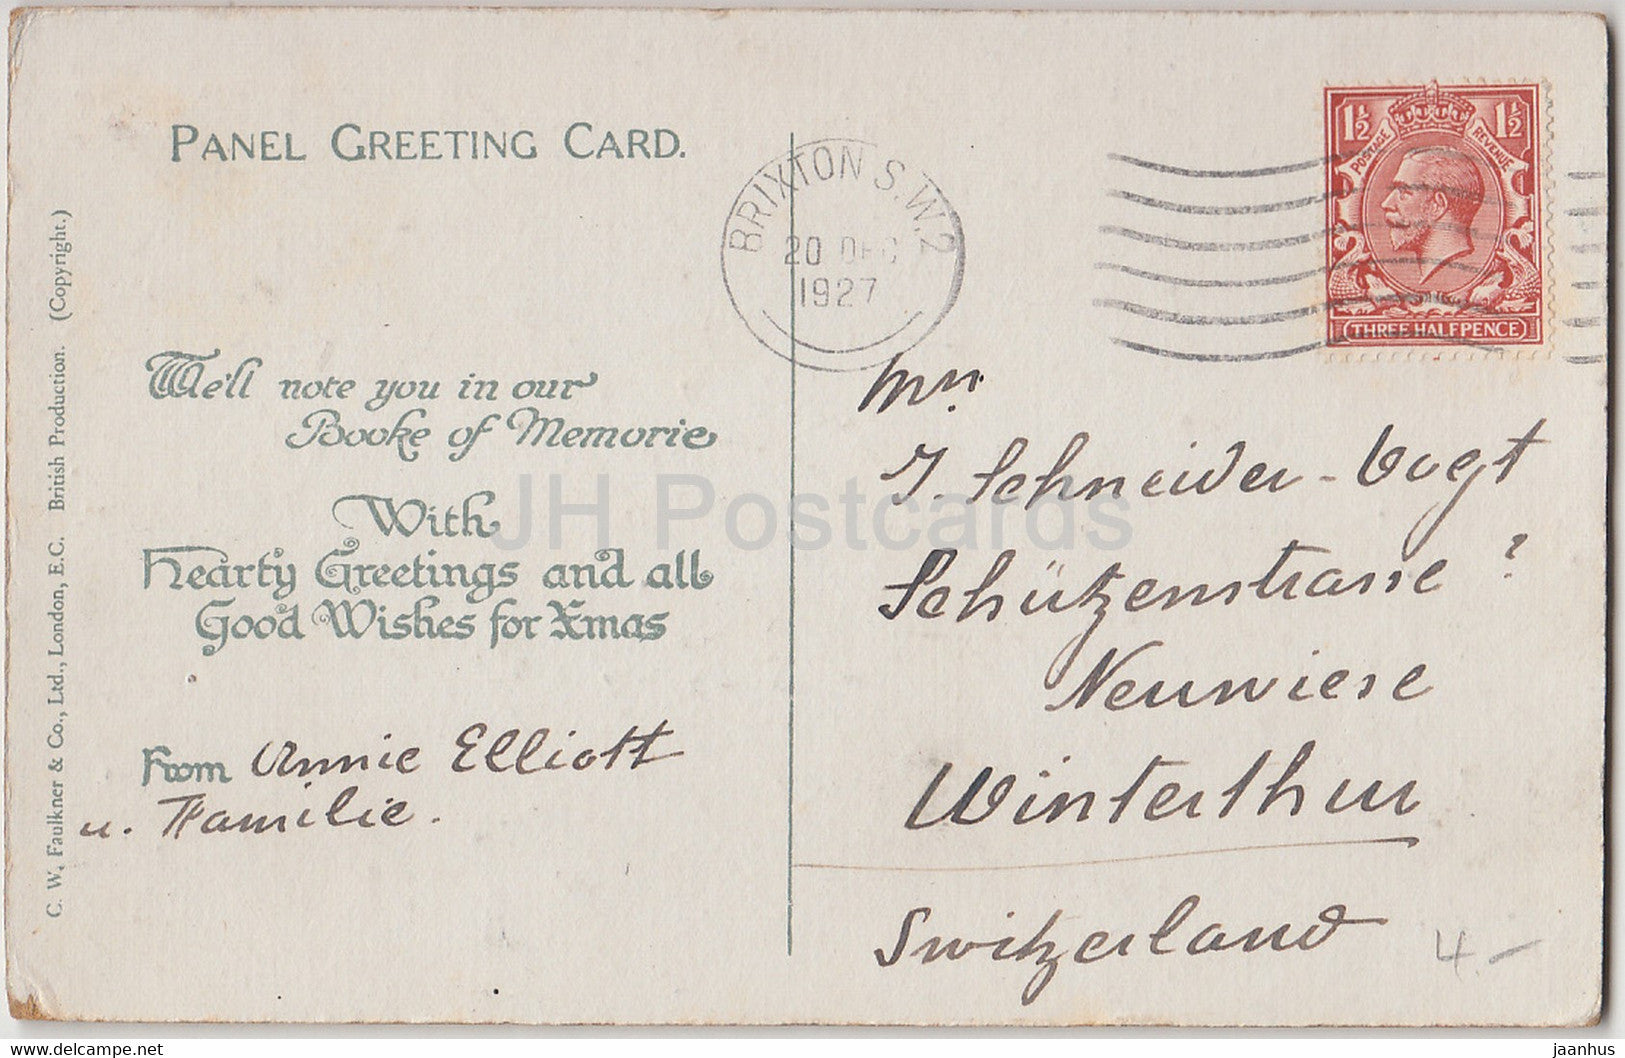 PANEL GREETING CARD.
We'll note you in our
Booke of Memorie
With
Hearty Greetings and all
Good Wishes for Xmas
From Annie Elliott
u. Familie.
C. W. Faulkner & Co., Ltd., London, E.C. British Production. (Copyright.)
BRIXTON S.W.2
20 DEC
1927
1½ 1½
POSTAGE REVENUE
THREE HALFPENCE
J. Schneider-Vogt
Schützenstrasse ?
Neuwiese
Winterthur
Switzerland
4.-
JH Postcards
jaanhus
https://www.delcampe.net